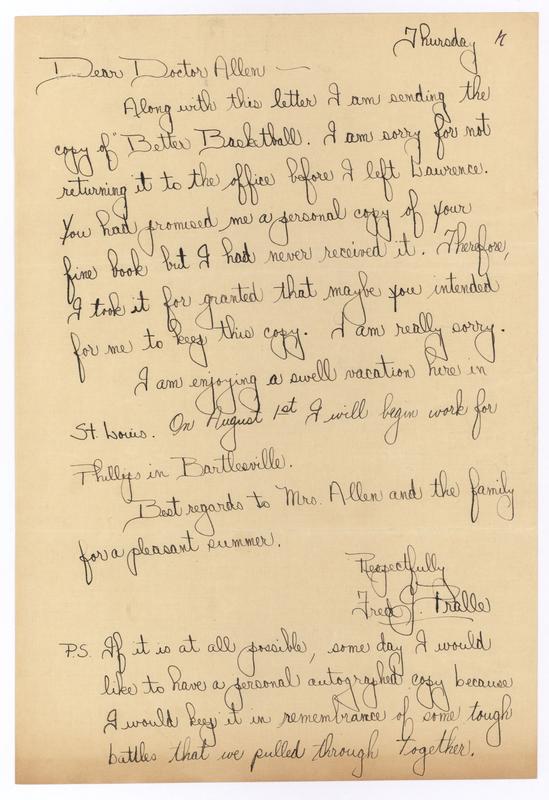 Thursday
Dear Doctor Allen —
Along with this letter I am sending the
copy of "Better Basketball. I am sorry for not
returning it to the office before I left Lawrence.
You had promised me a personal copy of your
fine book but I had never received it. Therefore,
I took it for granted that maybe you intended
for me to keep this copy. I am really sorry.
I am enjoying a swell vacation here in
St. Louis. On August 1st I will begin work for
Phillips in Bartlesville.
Best regards to Mrs. Allen and the family
for a pleasant summer.
Respectfully
Fred J. Pralle
P.S. If it is at all possible, some day I would
like to have a personal autographed copy because
I would keep it in remembrance of some tough
battles that we pulled through together.